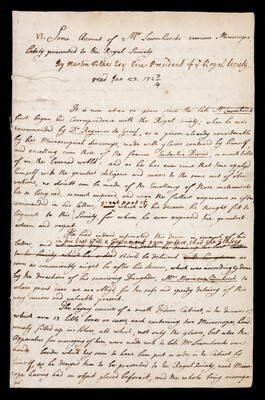 VI. Some Account of Mr Leeuwenhoek's curious Microscopes
lately presented to the Royal Society.
By Martin Folkes Esq Vice President of ye Royal Society.
read Jan 23. 172 3/4
It is now above 50 years since the late Mr Leeuwenhoek
first began his Correspondence with the Royal Society; when he was
recommended by Dr Regnerus de Graaf, as a person already considerable
by his Microscopical discoveries, made with glasses contrived by himself,
and excelling even those of the famous Eustachio Divini, so much
of in the learned world: And as he has ever since that time applied
himself with the greatest diligence and success to the same sort of obser-
vations, no doubt can be made of the excellency of those instruments
he so long used, so much improved, and upon the fullest experience so often
commended in his letters, great part of which at his decease he thought fit to
bequeath to this Society for whom he ever expressed the greatest
esteem and respect.
He had indeed intimated this design in several of his
letters, and
Society which he ordered should be delivered
soon as conveniently might be after his decease, which was accordingly done
by the direction of his surviving Daughter Mrs Maria
whose great care we are obliged for the safe and speedy delivery of this
very curious and valuable present.
The Legacy consists of a small Indian Cabinet, in the Drawers of
which are 13 little boxes or cases, each containing two Microscopes, hand-
somely fitted up in silver, all which, not only the glasses, but also the
Apparatus for managing of them, were made with the late Mr Leeuwenhoek's own
hands: besides which they seem to have been put in order in the Cabinet by
himself, as he designed them to be presented to the Royal Society, each Micro-
scope having had an object placed before it, and the whole being accompa-